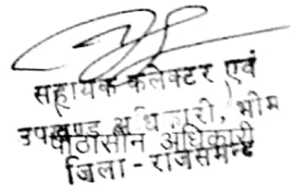 सहायक कलेक्टर एवं
उपखण्ड अधिकारी, भीम
पीठासीन अधिकारी
जिला - राजसमन्द